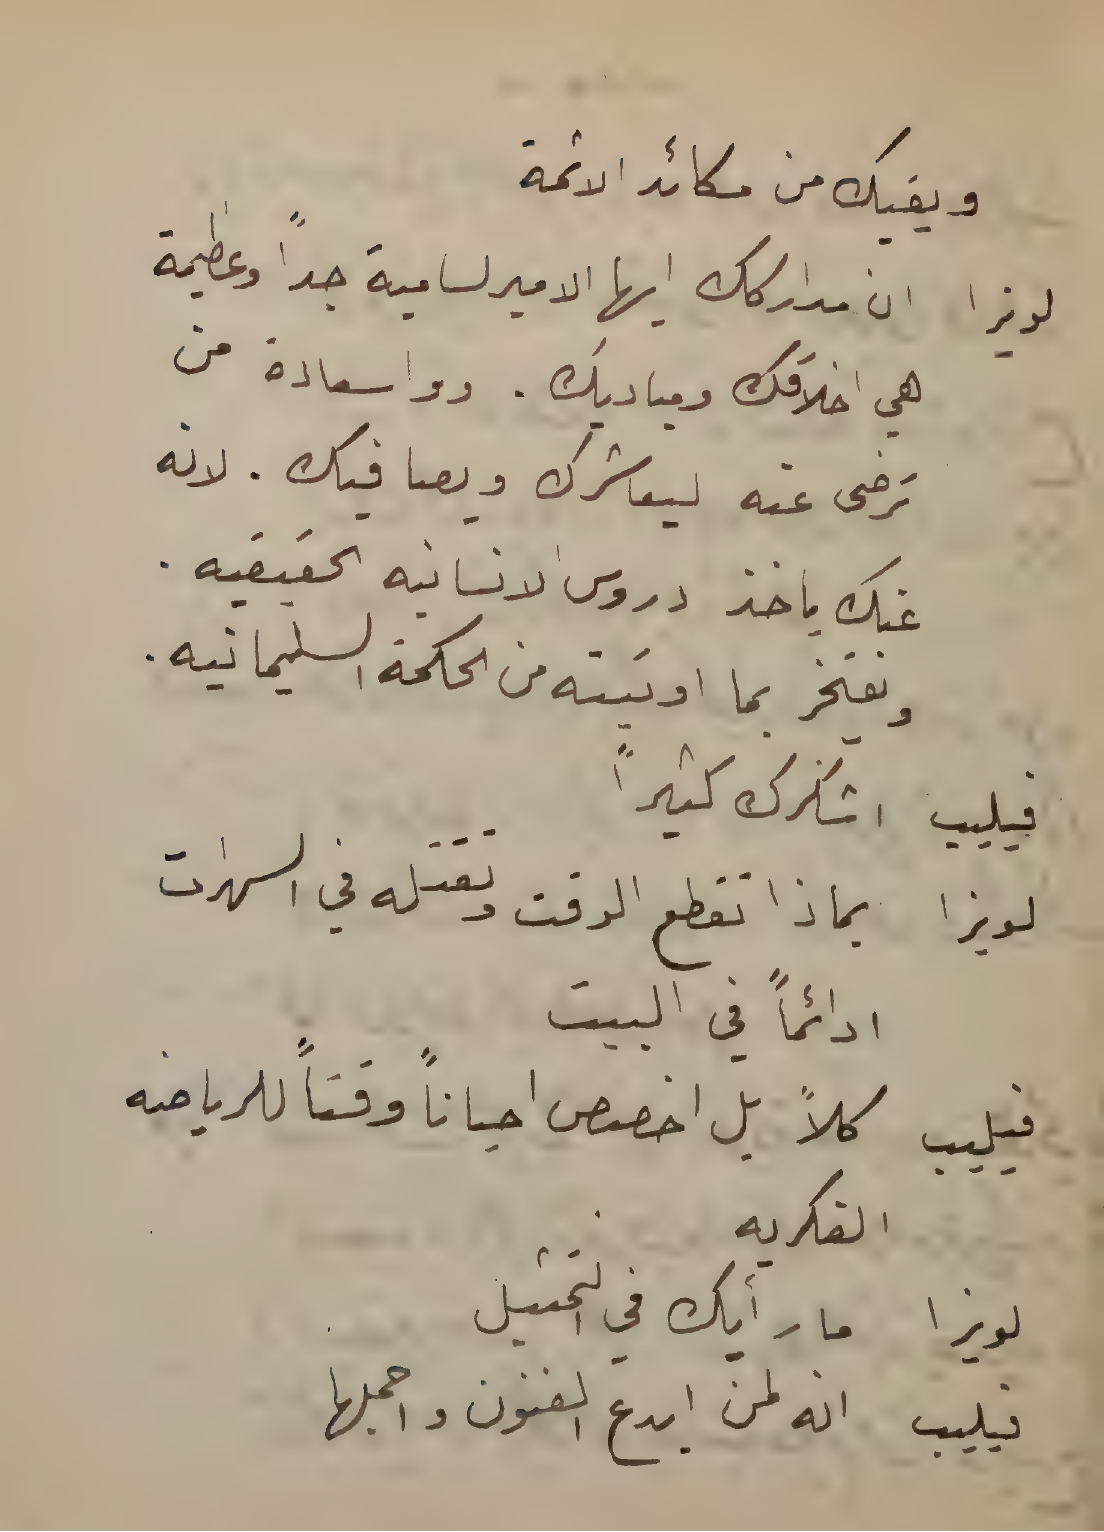 ويقيك من مكائد الائمة
لويزا ان مداركك ايها الامير لسامية جداً وعظيمة
هي اخلاقك ومباديك . ووا سعادة من
ترضى عنه ليعاشرك ويصافيك . لانه
عنك ياخذ دروس الانسانيه الحقيقيه .
ونفتخر بما اوتيته من الحكمة السليمانيه .
فيليب اشكرك كثيراً
لويزا بماذا تقطع الوقت وتقتله في السهرات
ادائماً في البيت
فيليب كلاً بل اخصص احياناً وقتاً للرياضه
الفكريه
لويزا ما رأيك في التمثيل
فيليب انه لمن ابدع الفنون واجملها